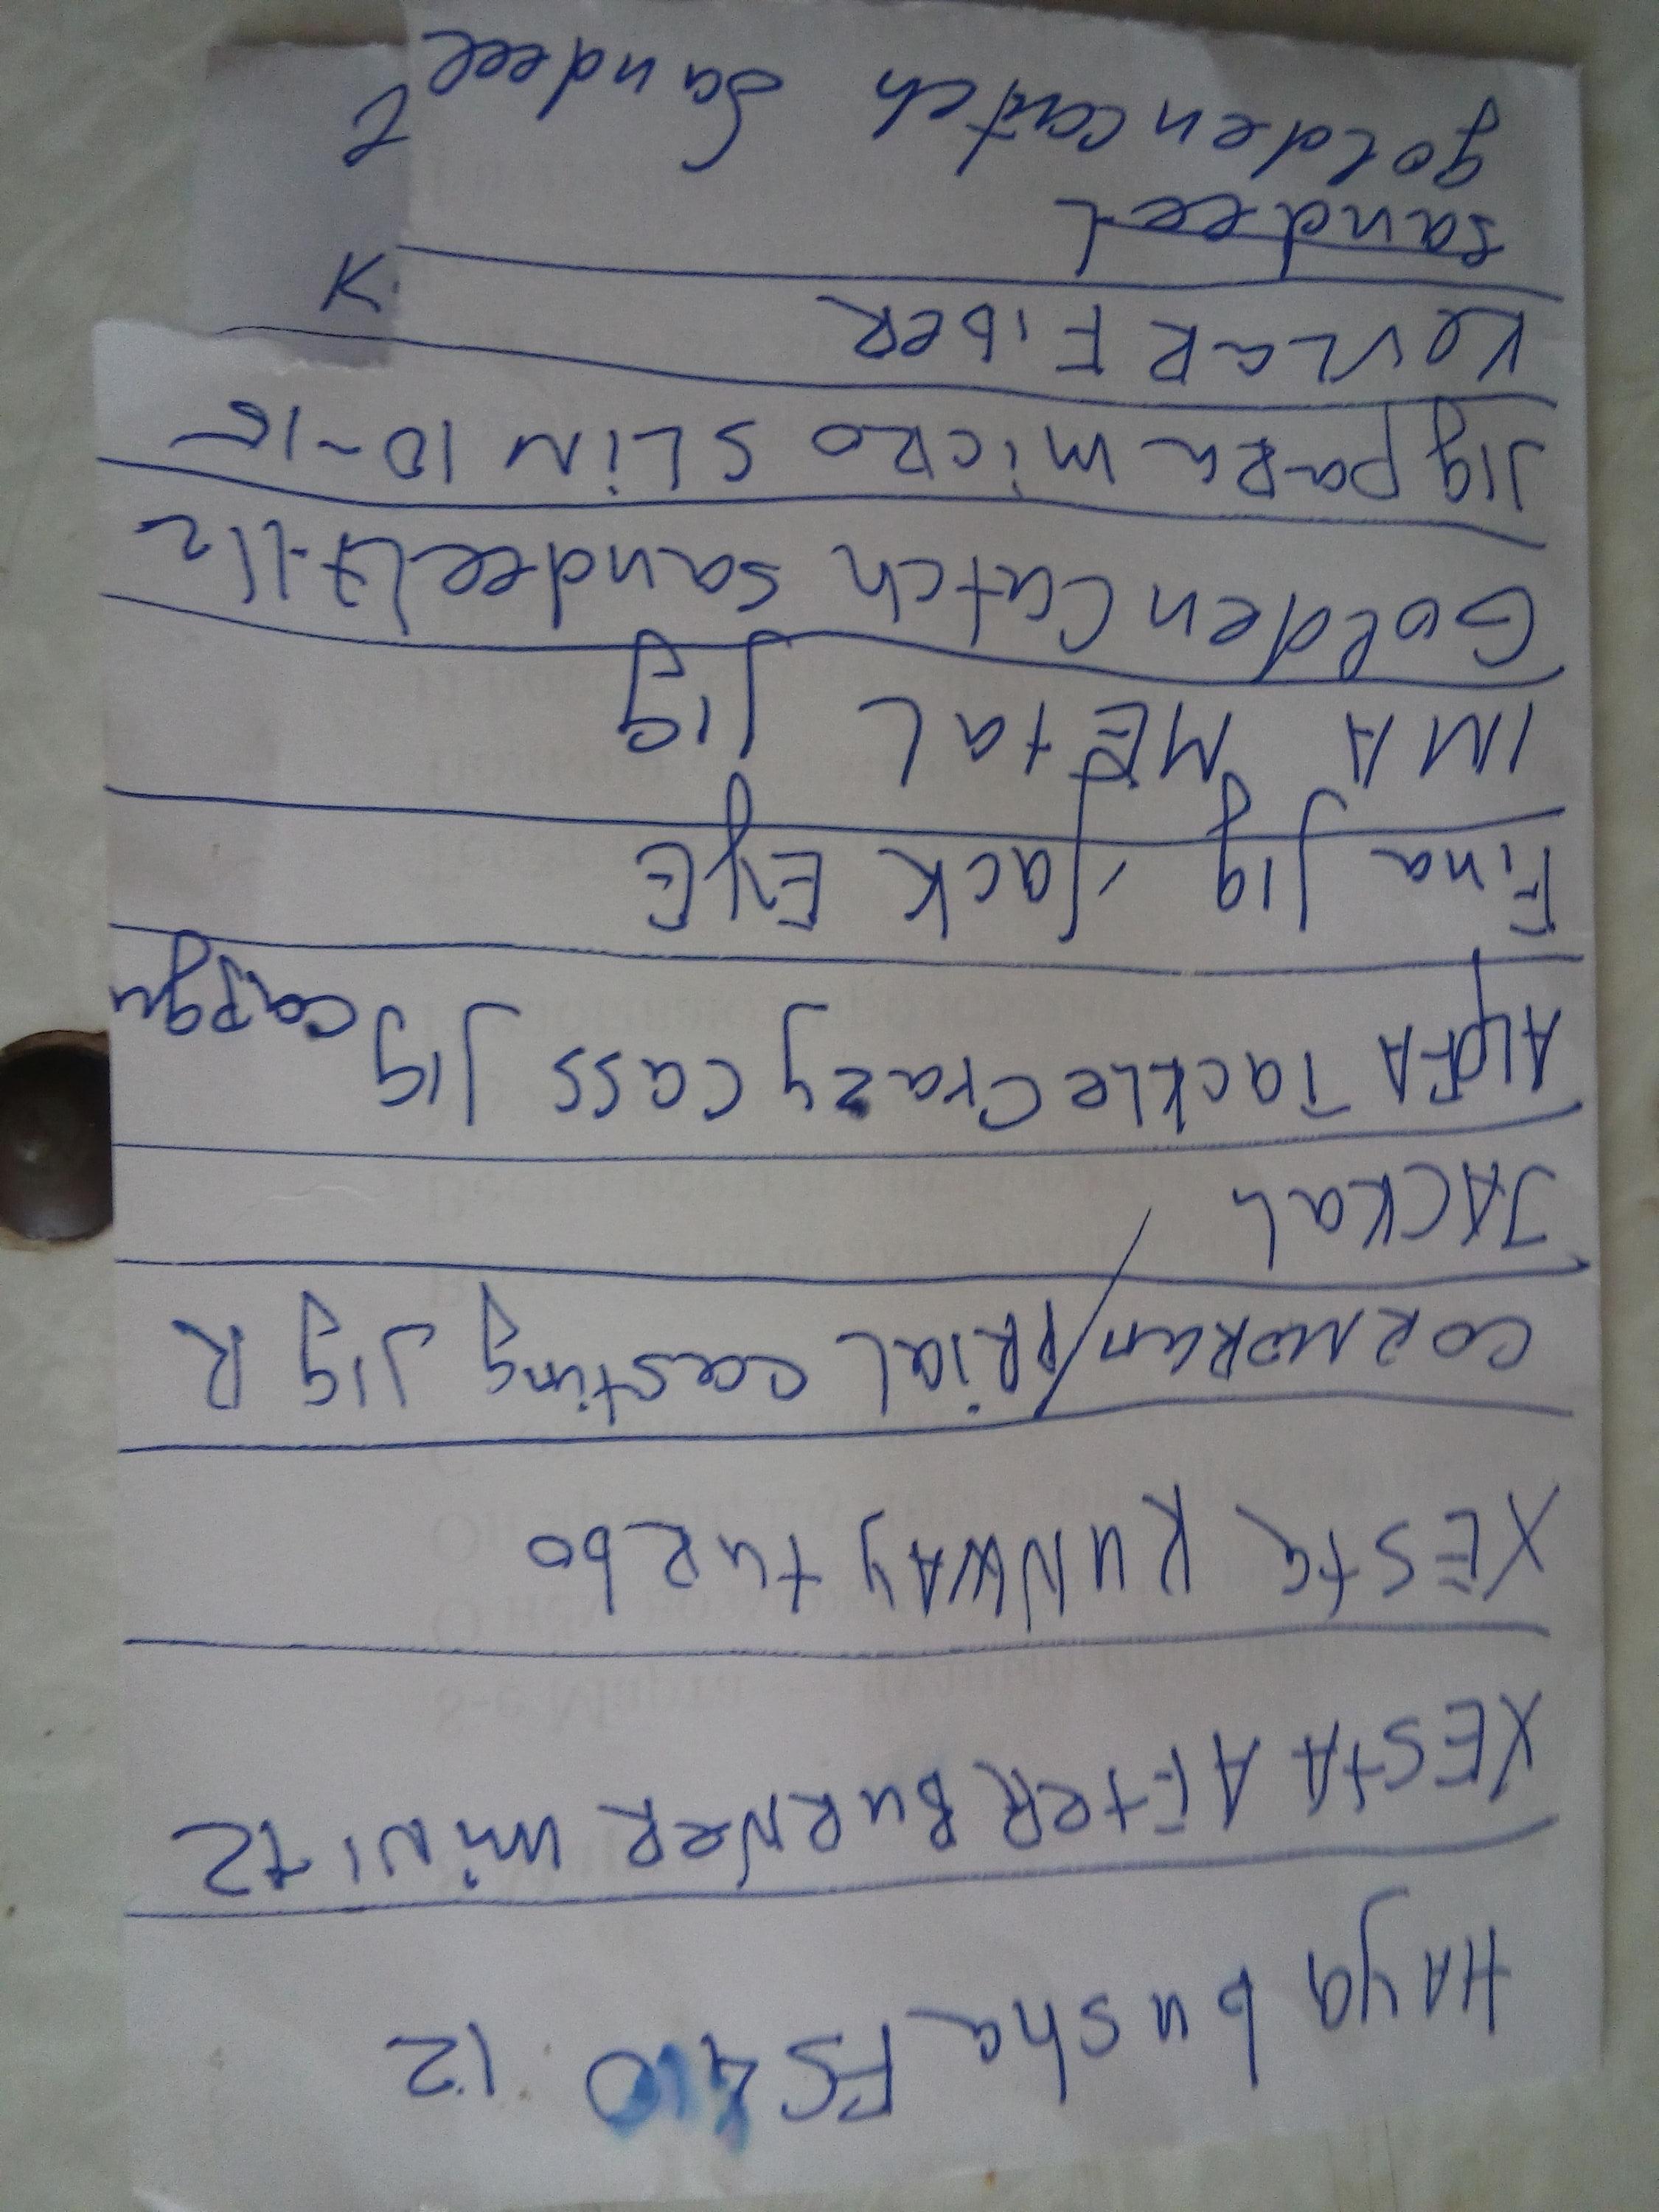 HAYA busha FS410 12
XESTA AFteR BuRNeR miNi 72
XESta RuNWAy tuRbo
CORMORan/PRiaL casting Jig R
JACKaL
ALFA TackLe Crazy cass Jig
Fina Jig Jack EYE
IMA METaL Jig
Golden Catch sandeel
Jig paRa micRo SLiM 10-15
KevLaR FibeR K
sandeeL
golden catch Sandeel